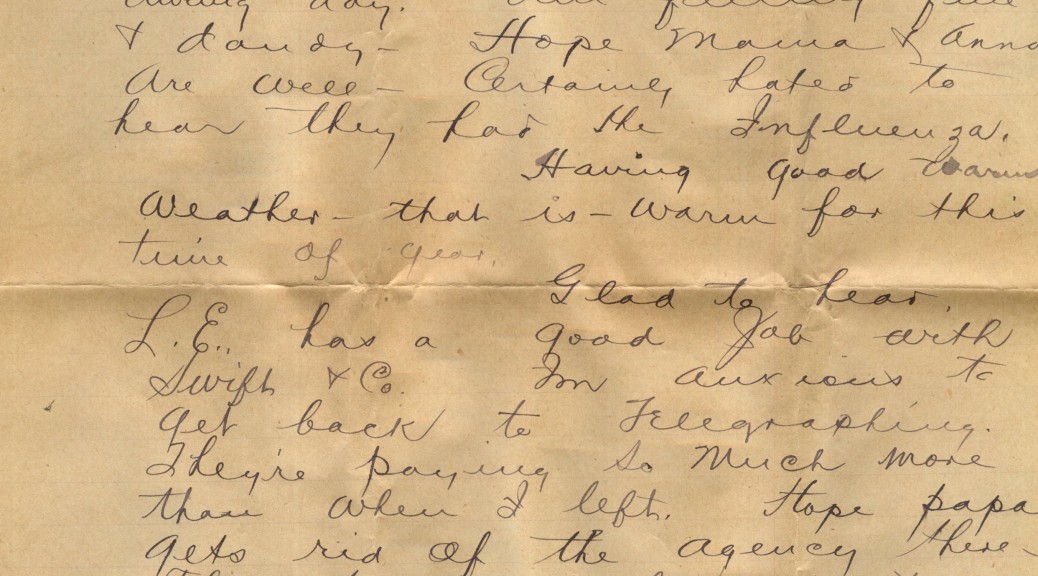 day. feeling fine
& dandy - Hope Mama & Anna
Are well - Certainly hated to
hear they had the Influenza.
Having good warm
Weather - that is - warm for this
time of year.
Glad to hear.
L.E., has a good Job with
Swift & Co. Im anxious to
get back to Telegraphing.
They're paying so Much more
than when I left. Hope papa
gets rid of the agency there -